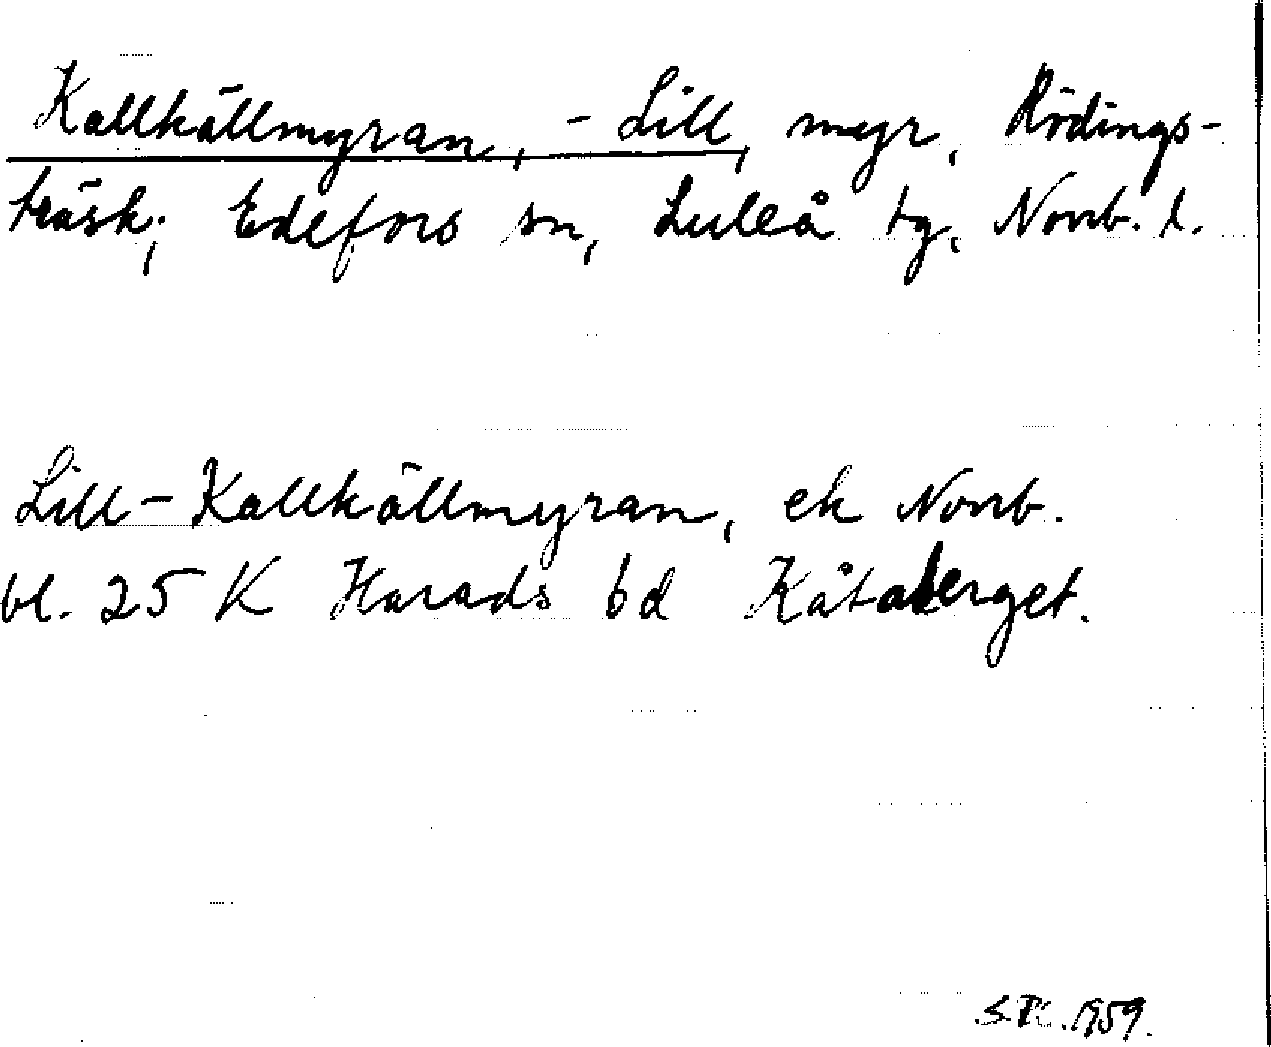 Kallkällmyran, - Lill, myr, Rödings-
träsk, Edefors sn, Luleå tg, Norrb. l.
Lill-Kallkällmyran, ek Norrb.
bl. 25 K Harads bd Kåtaberget.
1959.